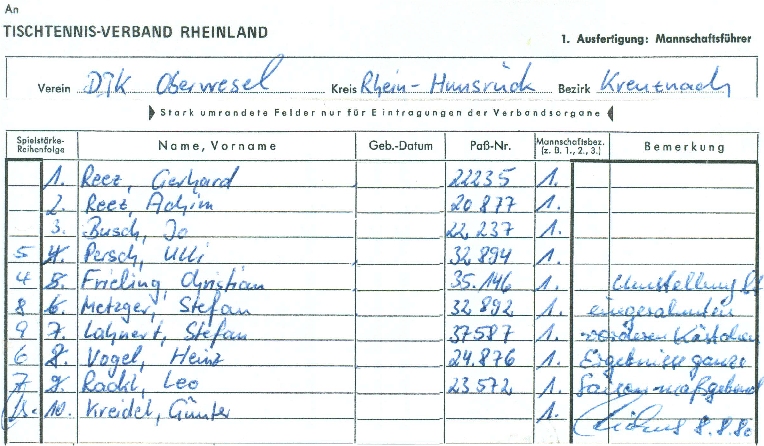 An
TISCHTENNIS-VERBAND RHEINLAND
1. Ausfertigung: Mannschaftsführer
Verein DJK Oberwesel Kreis Rhein-Hunsrück Bezirk Kreuznach
Stark umrandete Felder nur für Eintragungen der Verbandsorgane
Spielstärke-Reihenfolge Name, Vorname Geb.-Datum Paß-Nr. Mannschaftsbez. (z. B. 1., 2., 3.) Bemerkung
1. Reez, Gerhard 22235 1.
2. Reez, Achim 20.877 1.
3. Busch, Jo 22.237 1.
5 4. Persch, Ulli 32.894 1.
4 5. Frieling, Christian 35.146 1. Umstellung
8 6. Metzger, Stefan 32.892 1. eingerahmten
9 7. Lahnert, Stefan 37587 1. vorderen Kästchen
6 8. Vogel, Heinz 24.876 1. Ergebnisse ganze
7 9. Rackl, Leo 23.572 1. Saison maßgebend
10. Kreidel, Günter 1. 8.8.8